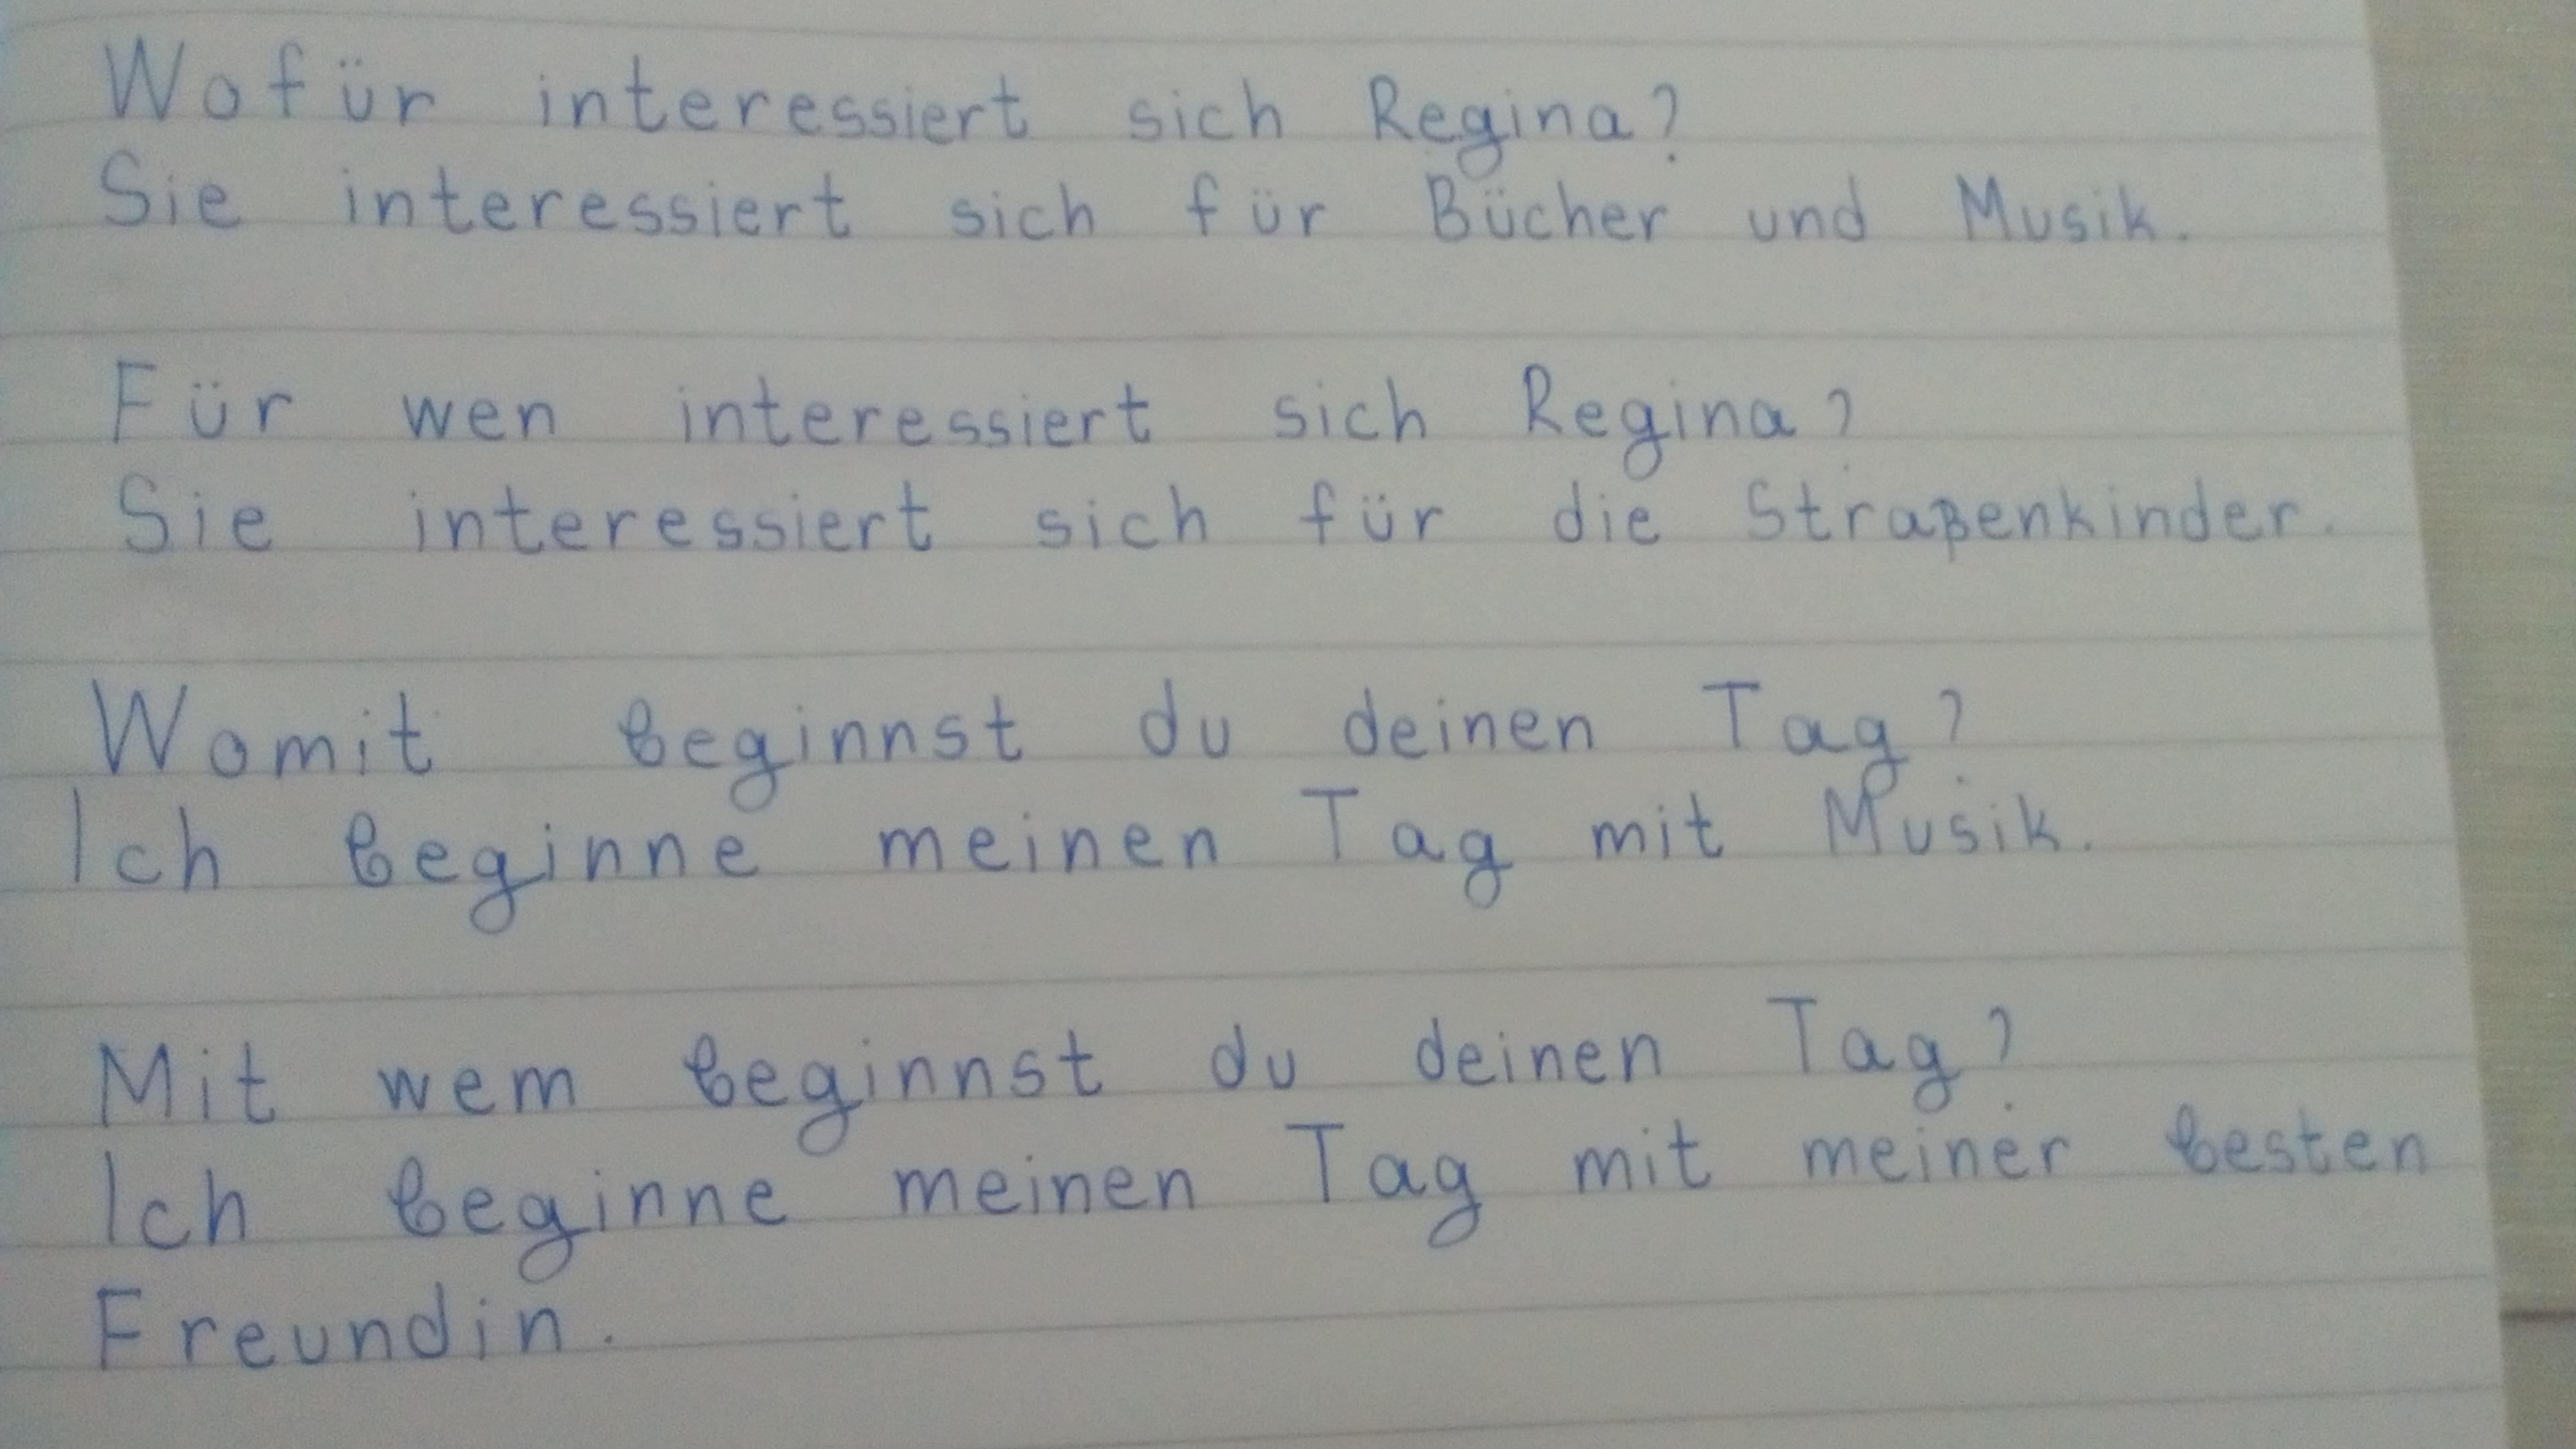 Wofür interessiert sich Regina?
Sie interessiert sich für Bücher und Musik.
Für wen interessiert sich Regina?
Sie interessiert sich für die Straßenkinder.
Womit beginnst du deinen Tag?
Ich beginne meinen Tag mit Musik.
Mit wem beginnst du deinen Tag?
Ich beginne meinen Tag mit meiner besten
Freundin.